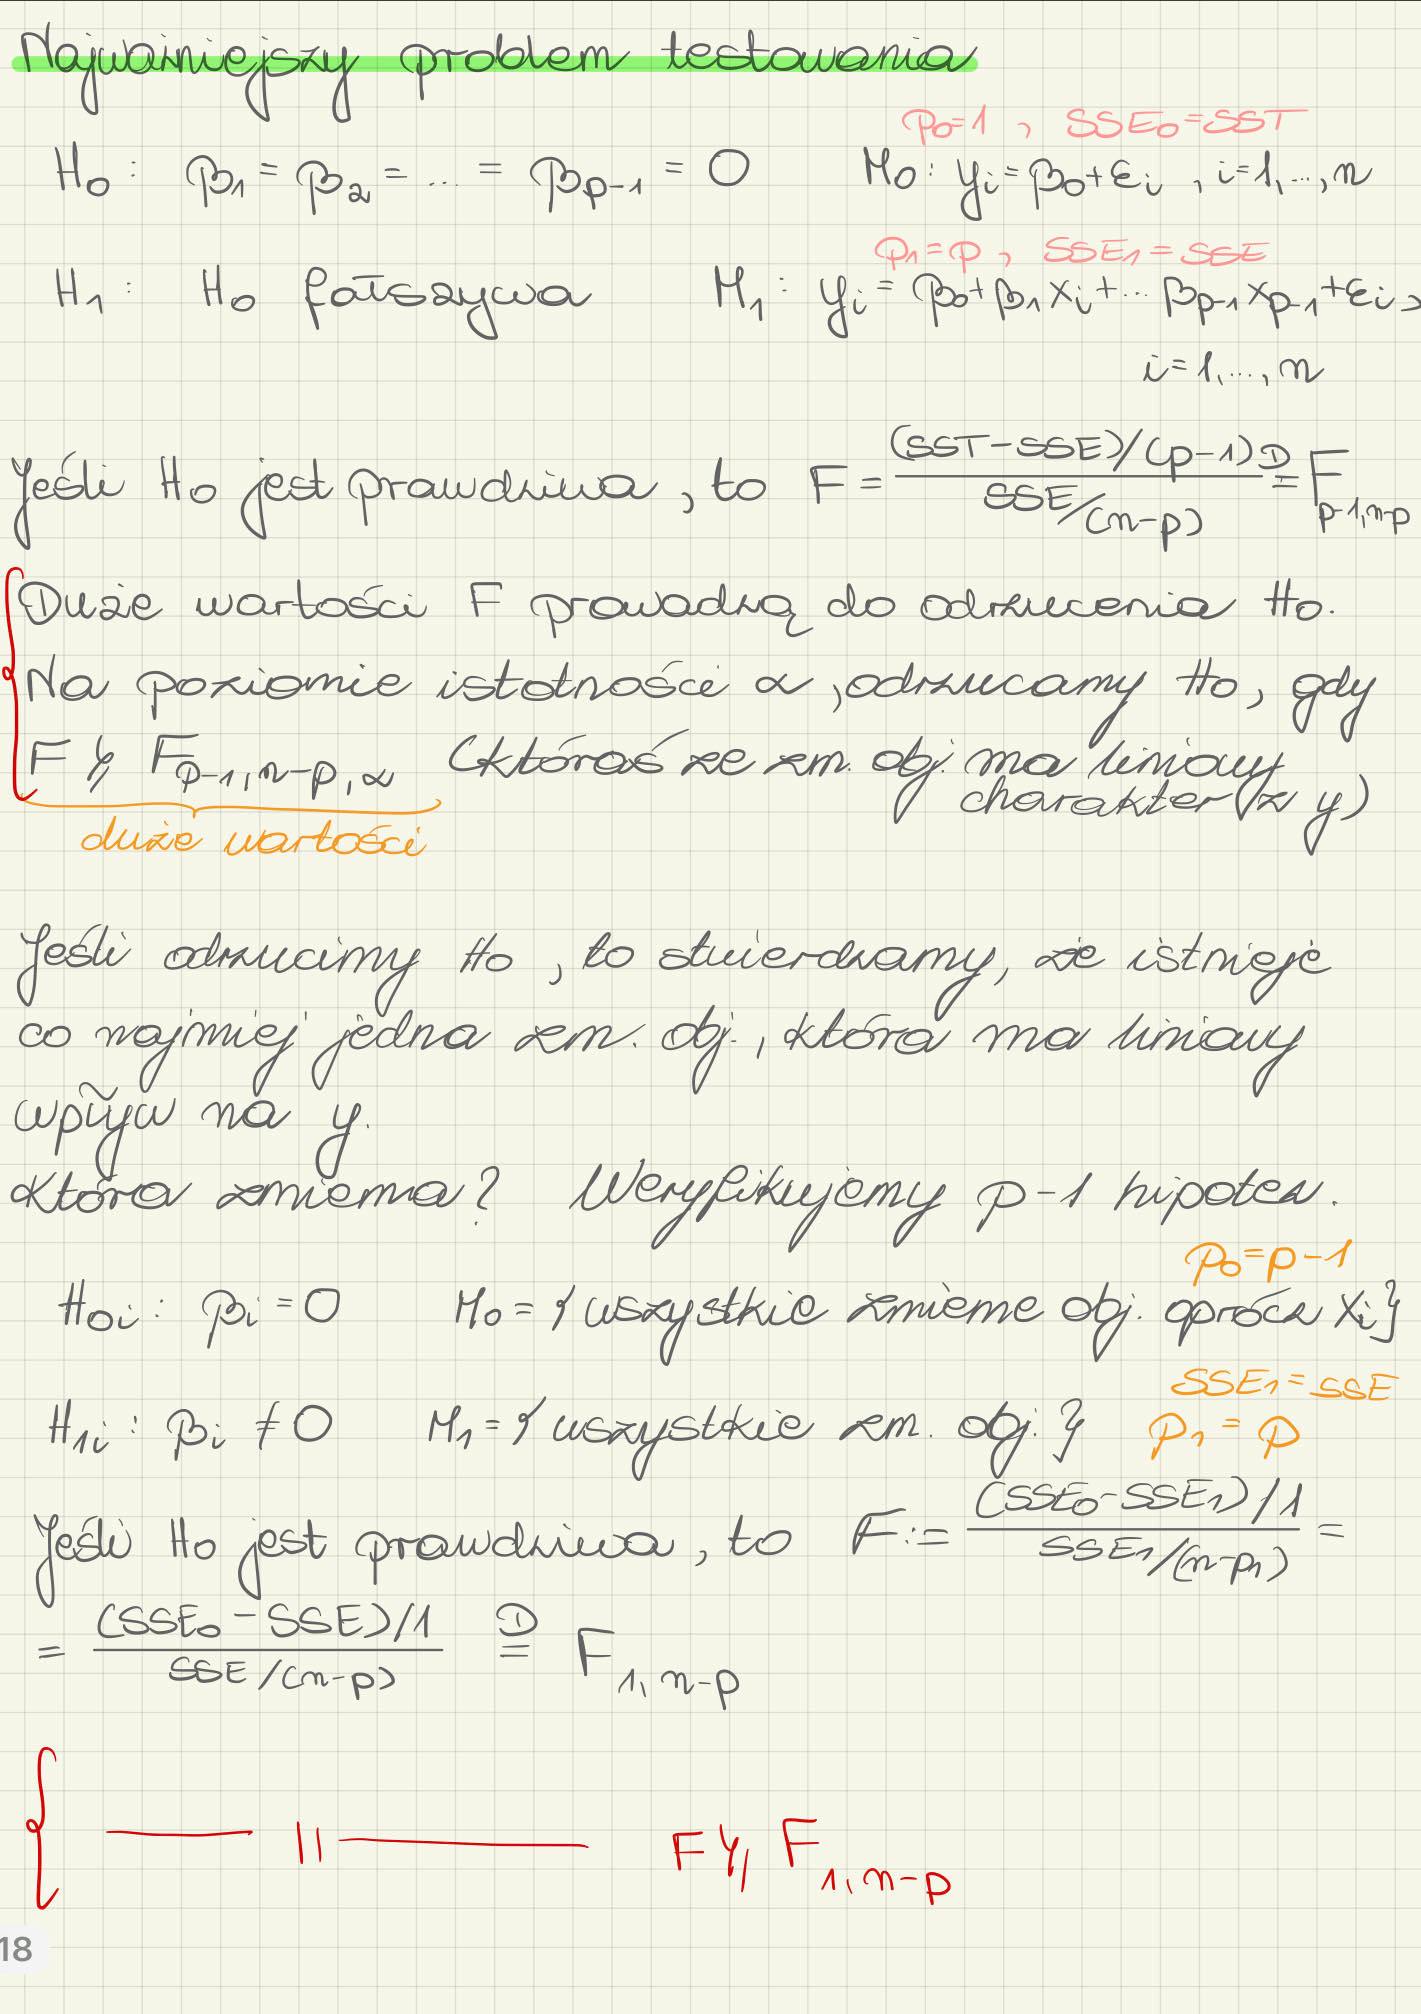 Najważniejszy problem testowania
p₀=1 , SSE₀=SST
H₀: β₁ = β₂ = ... = βₚ₋₁ = 0 M₀: yᵢ=β₀+εᵢ , i=1,...,n
p₁=p , SSE₁=SSE
H₁: H₀ fałszywa M₁: yᵢ= β₀+β₁xᵢ+... βₚ₋₁xₚ₋₁+εᵢ,
i=1,...,n
Jeśli H₀ jest prawdziwa, to F = ((SST-SSE)/(p-1))/(SSE/(n-p)) =ᴰ F_{p-1,n-p}
Duże wartości F prowadzą do odrzucenia H₀.
Na poziomie istotności α, odrzucamy H₀, gdy
F ≥ F_{p-1,n-p,α} (któraś ze zm. obj. ma liniowy
charakter z y)
duże wartości
Jeśli odrzucimy H₀, to stwierdzamy, że istnieje
co najmniej jedna zm. obj., która ma liniowy
wpływ na y.
Która zmienna? Weryfikujemy p-1 hipotez.
p₀=p-1
H₀ᵢ: βᵢ=0 M₀={wszystkie zmienne obj. oprócz xᵢ}
SSE₁=SSE
H₁ᵢ: βᵢ ≠ 0 M₁={wszystkie zm. obj.} p₁ = p
Jeśli H₀ jest prawdziwa, to F:= ((SSE₀-SSE₁)/1)/(SSE₁/(n-p₁)) =
= ((SSE₀-SSE)/1)/(SSE/(n-p)) =ᴰ F_{1,n-p}
— 11 — F ≥ F_{1,n-p}
18